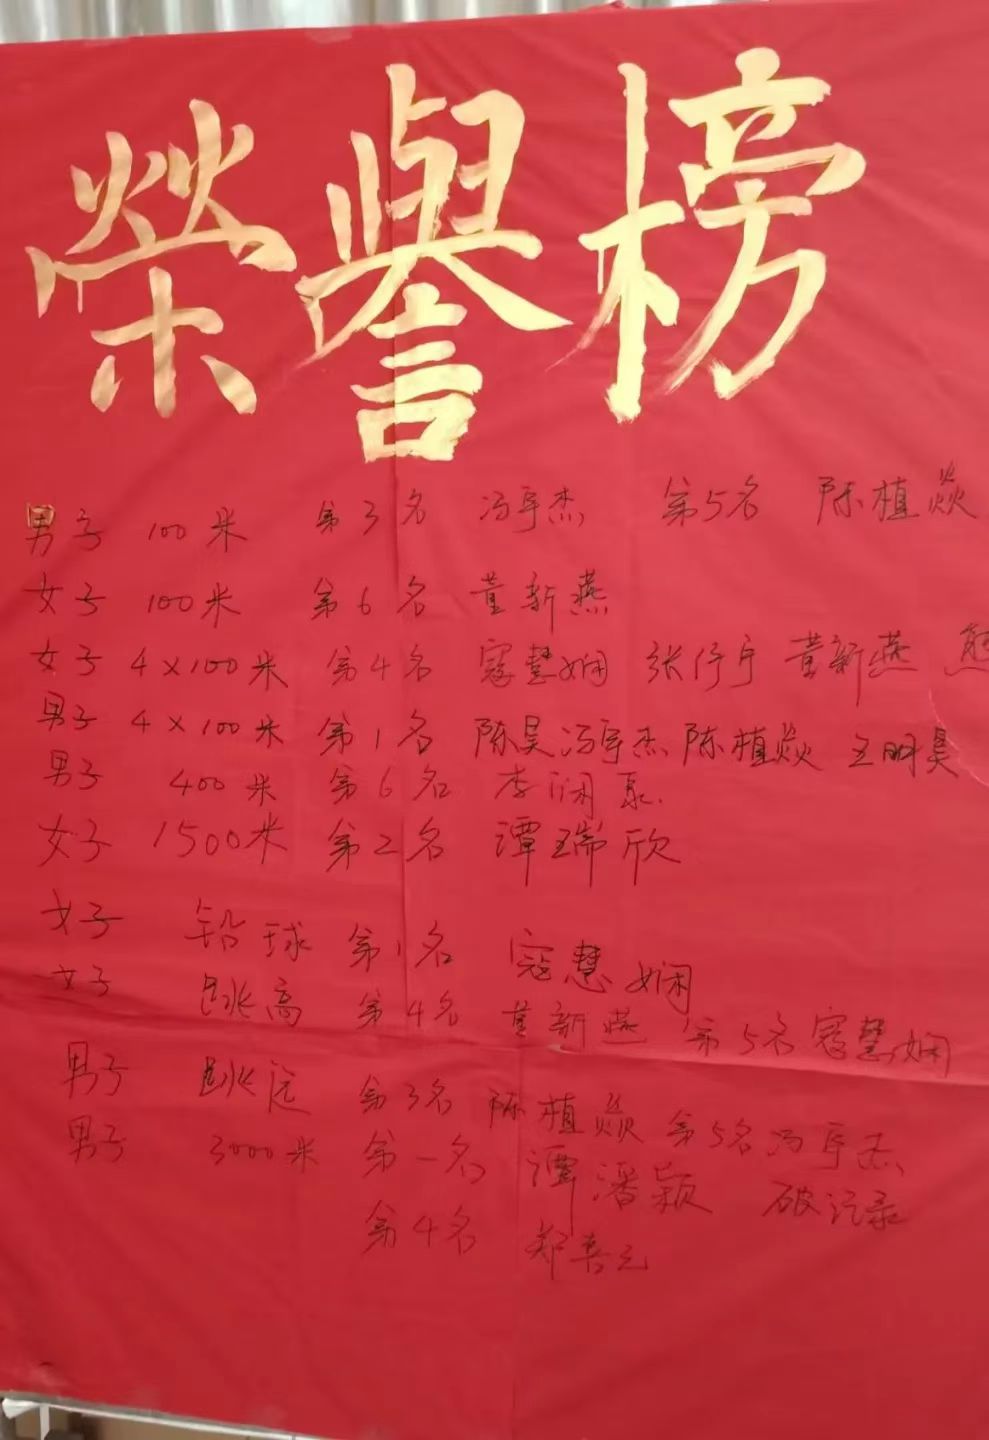 榮譽榜
男子 100米 第3名 冯宇杰 第5名 陈植焱
女子 100米 第6名 董新燕
女子 4×100米 第4名 寇慧娴 张伃宁 董新燕
男子 4×100米 第1名 陈昊 冯宇杰 陈植焱 王明昊
男子 400米 第6名 李润泉
女子 1500米 第2名 谭瑞欣
女子 铅球 第1名 寇慧娴
女子 跳高 第4名 董新燕 第5名 寇慧娴
男子 跳远 第3名 陈植焱 第5名 冯宇杰
男子 3000米 第一名 谭潘颖 破记录
第4名 郑喜元